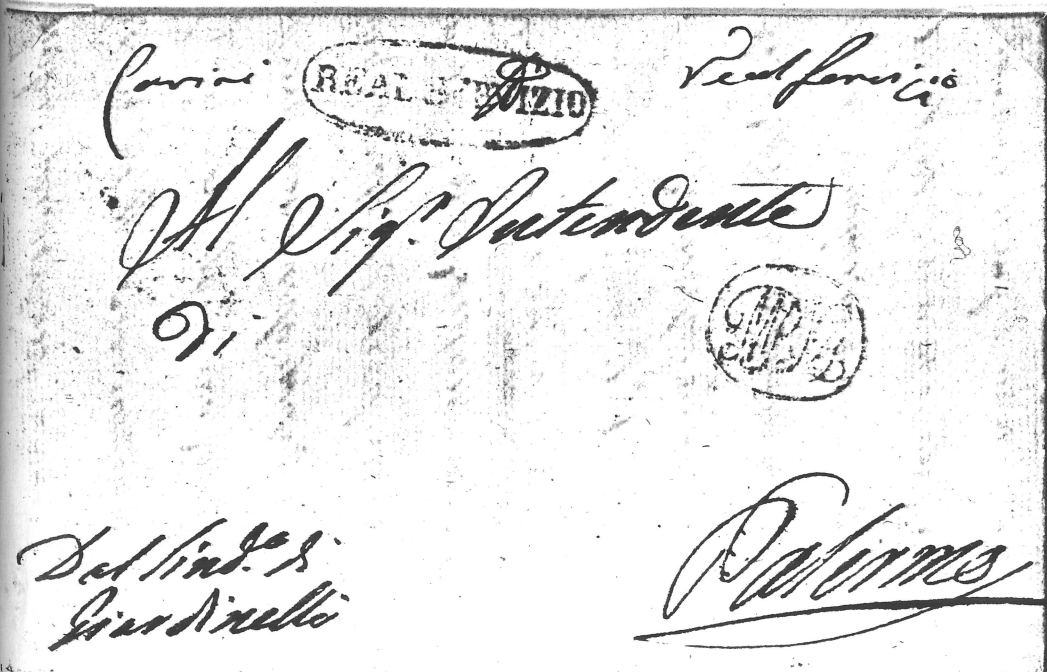 Carini REAL SERVIZIO Real Servizio
Al Sigr. Intendente
Di
Dal Sind.co di
Giardinello
Palermo